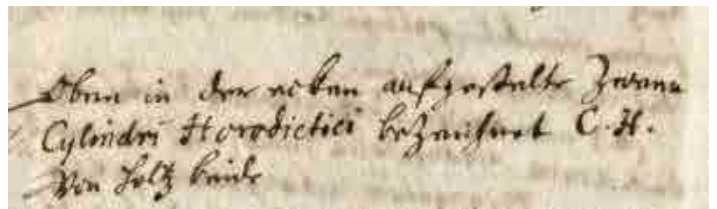 Oben in der ecken aufgestelte Zween
Cylindri Horodictici bezeichnet C. H.
von holtz beide